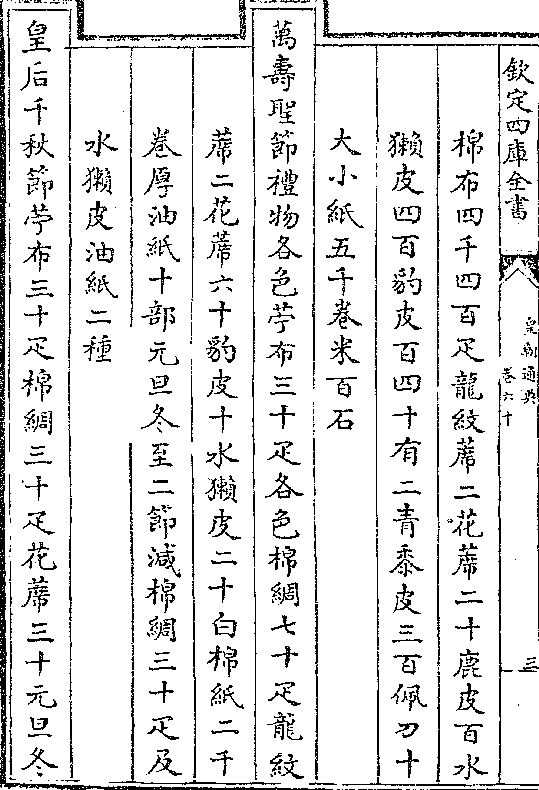 欽定四庫全書
皇朝通典
卷六十
三
棉布四千四百疋龍紋蓆二花蓆二十鹿皮百水
獺皮四百豹皮百四十有二青黍皮三百佩刀十
大小紙五千卷米百石
萬壽聖節禮物各色苧布三十疋各色棉綢七十疋龍紋
蓆二花蓆六十豹皮十水獺皮二十白棉紙二千
卷厚油紙十部元旦冬至二節減棉綢三十疋及
水獺皮油紙二種
皇后千秋節苧布三十疋棉綢三十疋花蓆三十元旦冬